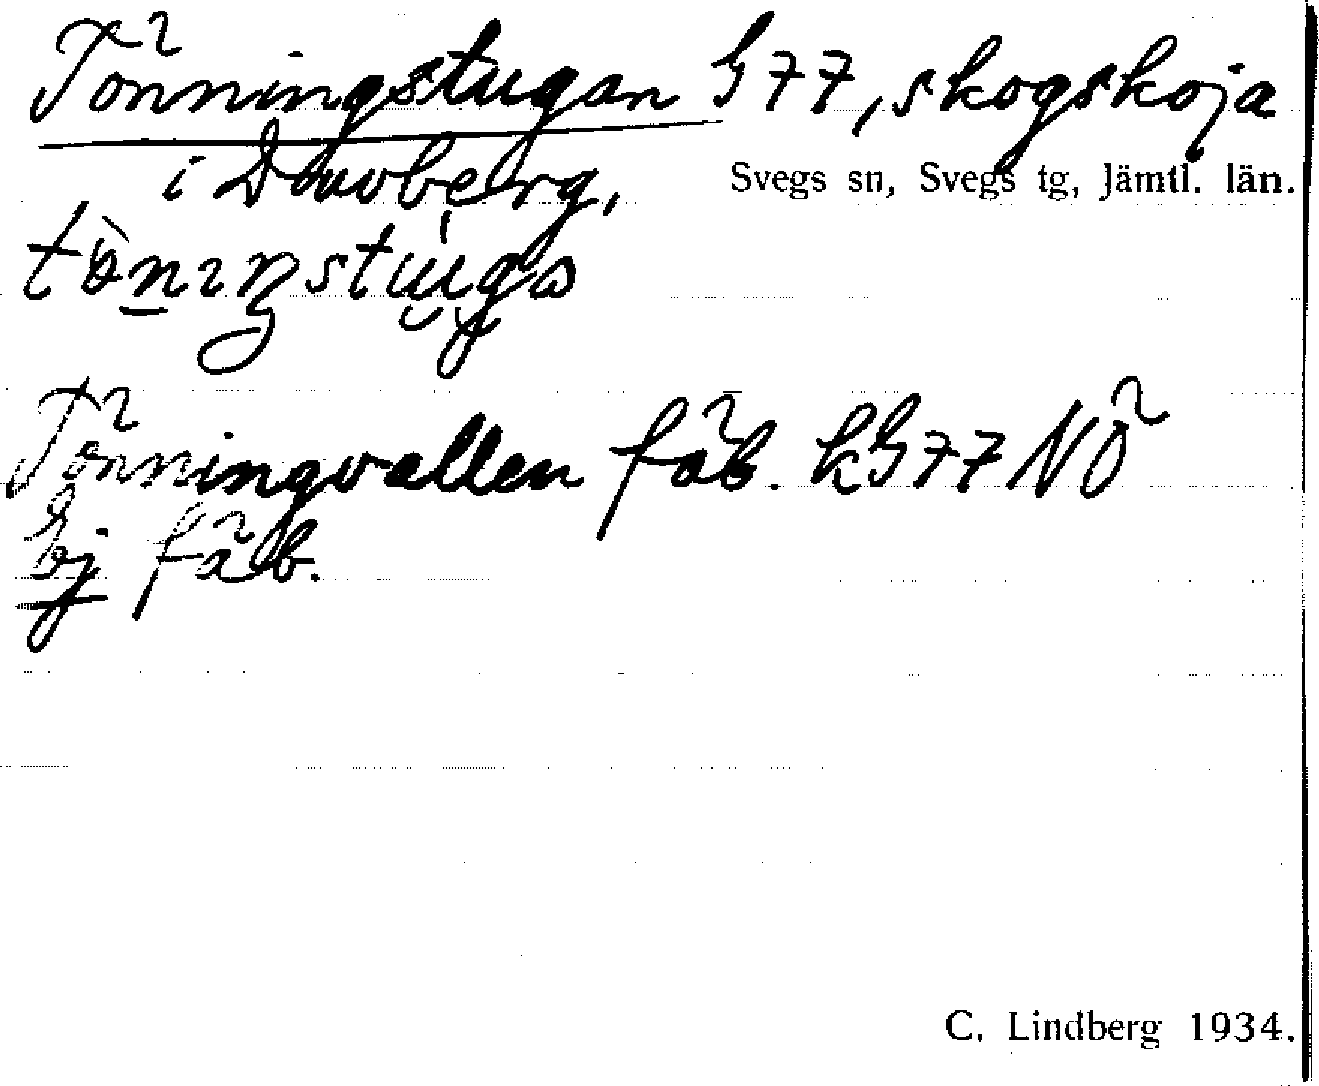 Tönningstugan G77, skogskoja
i Duvberg,
Svegs sn, Svegs tg, Jämtl. län.
Tönningvallen fäb. kG77NÖ
Ej fäb.
C. Lindberg 1934.